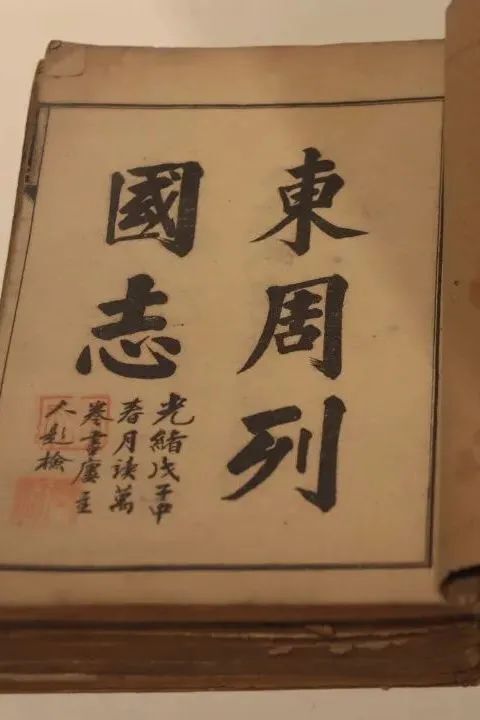 東周列
國志
光緒戊子中
春月读萬
卷書廔主
人題檢